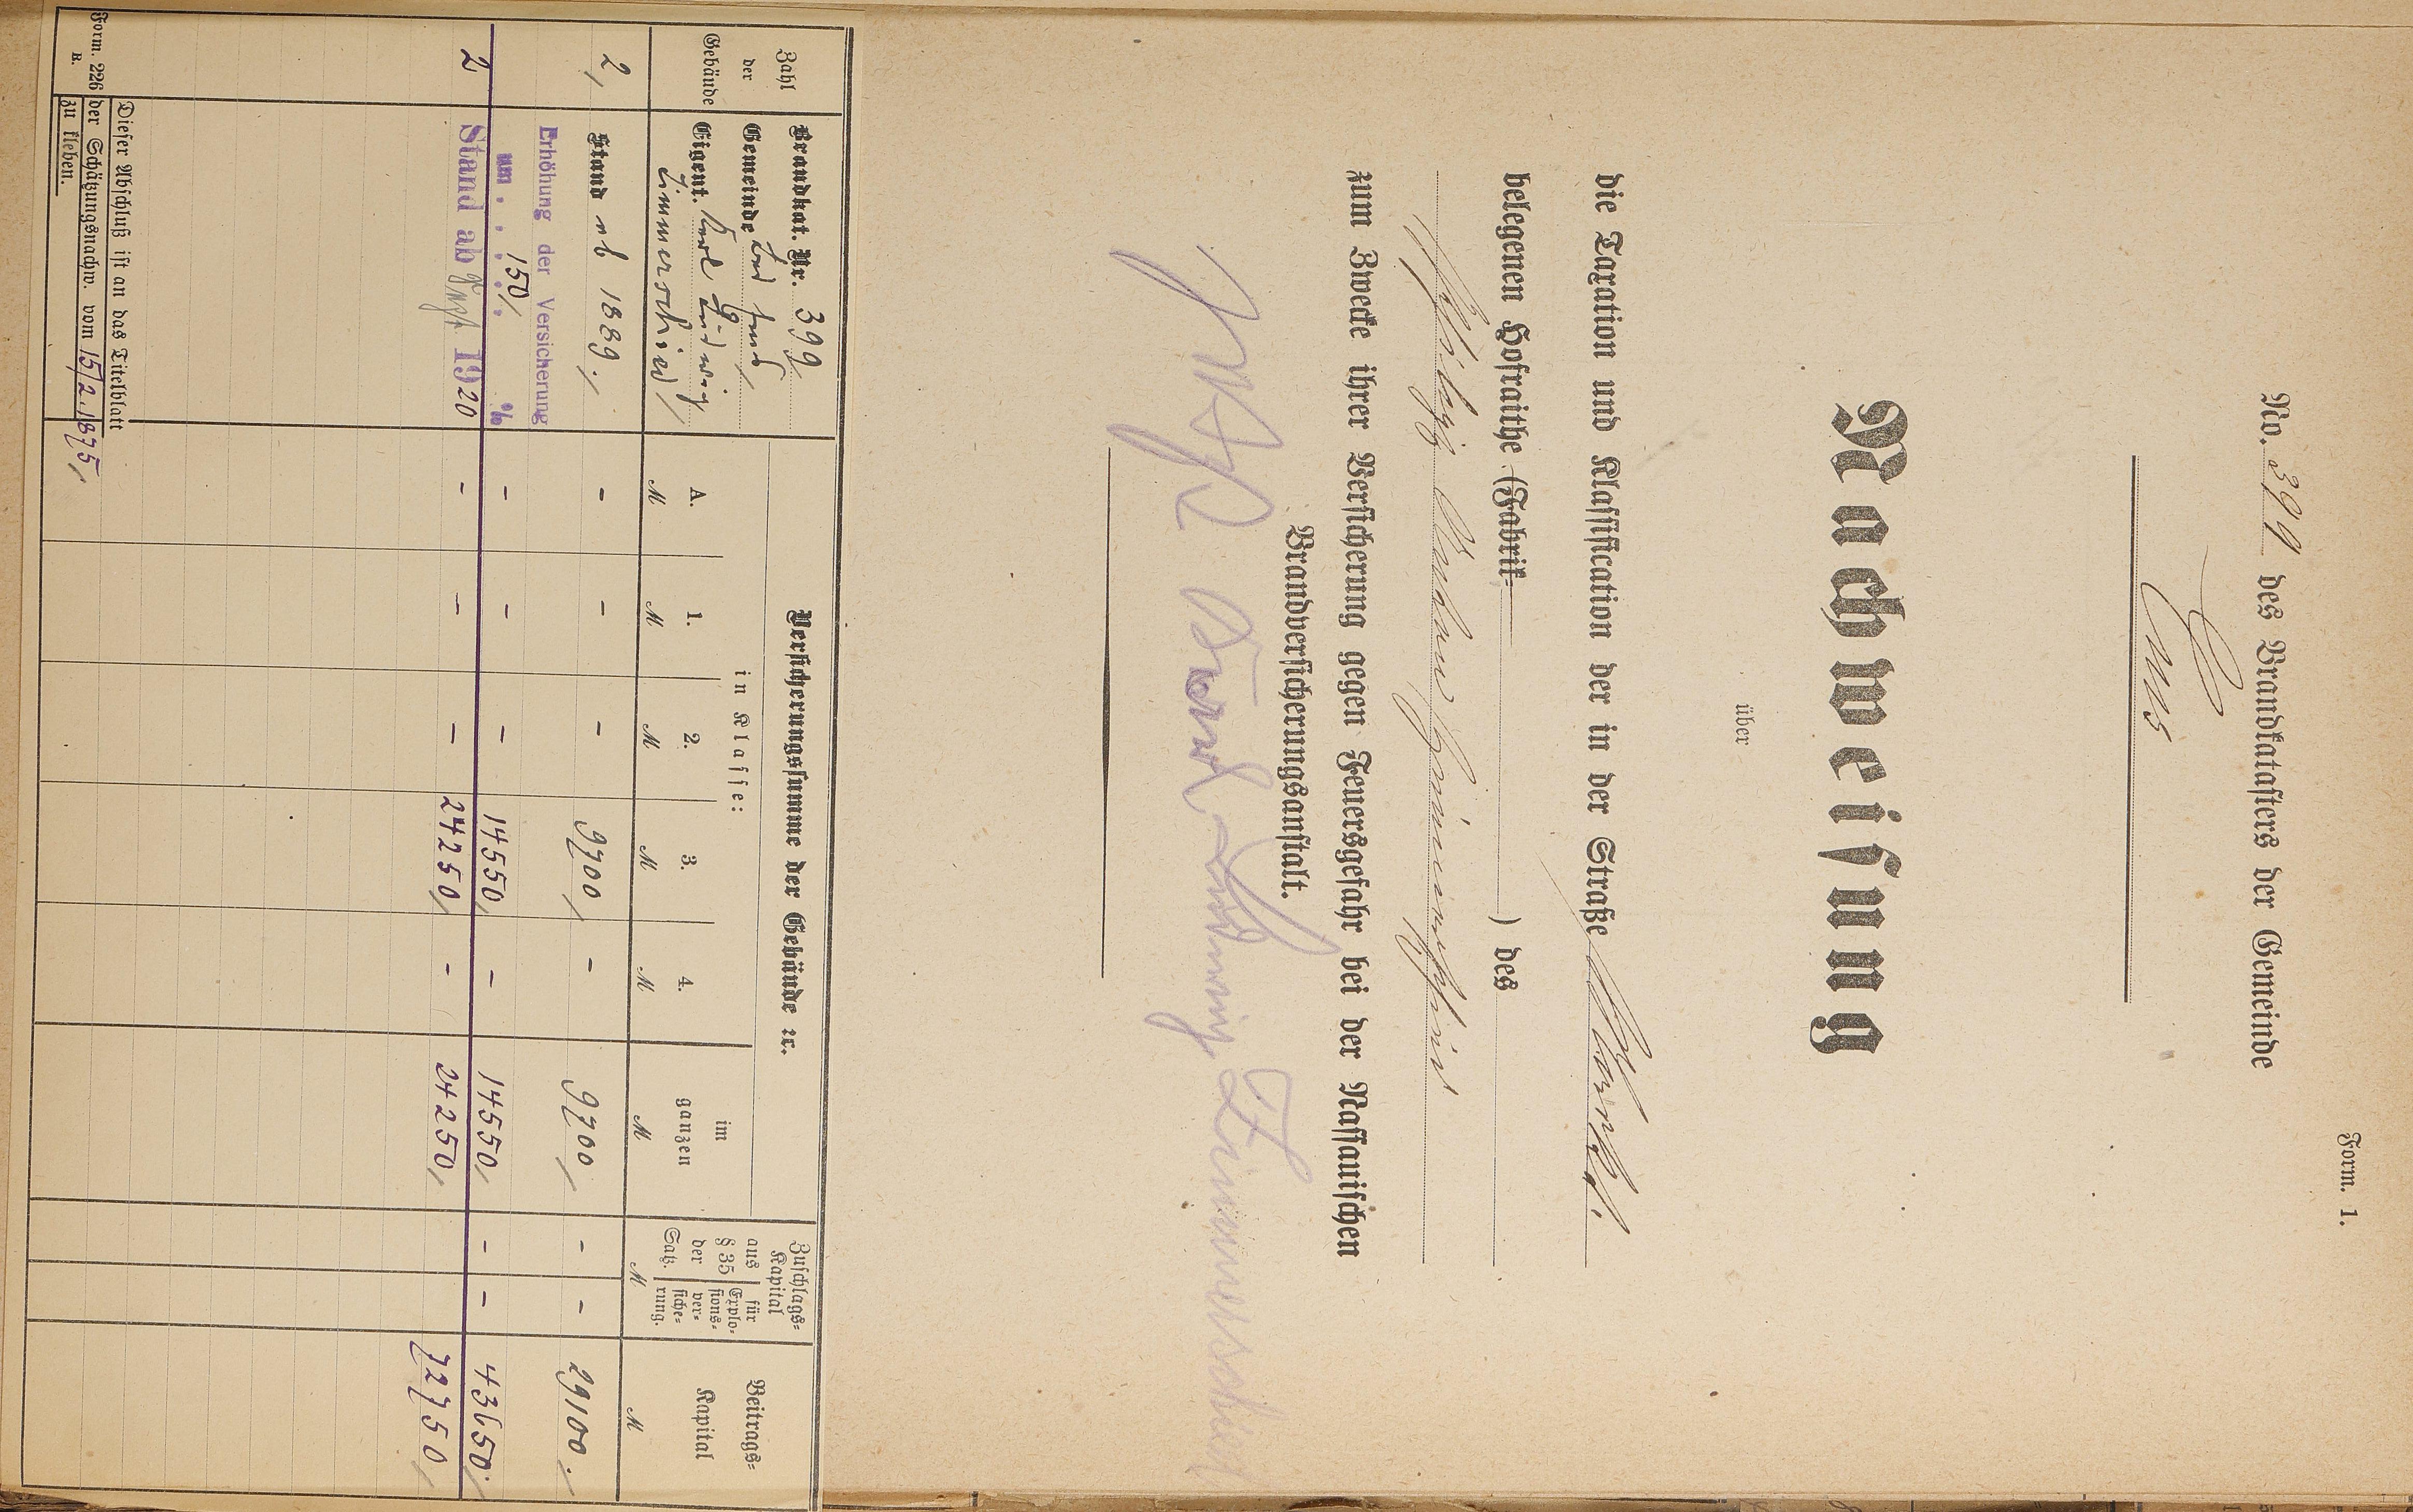 Form. 1.
No. 399 des Brandkatasters der Gemeinde
Ems
Nachweisung
über
die Taxation und Klassification der in der Straße
belegenen Hofraithe (Fabrik- ) des
zum Zwecke ihrer Versicherung gegen Feuersgefahr bei der Nassauischen
Brandversicherungsanstalt.
jetzt Karl Ludwig Zimmerschied
Zahl der Gebäude
Brandkat. Nr. 399
Gemeinde Bad Ems
Eigent. Karl Ludwig
Zimmerschied
Versicherungssumme der Gebäude ꝛc.
in Klasse:
A. 1. 2. 3. 4. im ganzen
M M M M M M
Zuschlags-Kapital
aus § 35 der Satz.
für Explosions-versiche-rung.
M
Beitrags-Kapital
M
2, Stand ab 1889. - - - 9700 - 9700 - - 29100.
Erhöhung der Versicherung
um . . 150 . . % - - - 14550 - 14550 - - 43650.
2 Stand ab 1920 - - - 24250 - 24250 72750
Dieser Abschluß ist an das Titelblatt
der Schätzungsnachw. vom 15/2. 1875
zu kleben.
Form. 226
B.